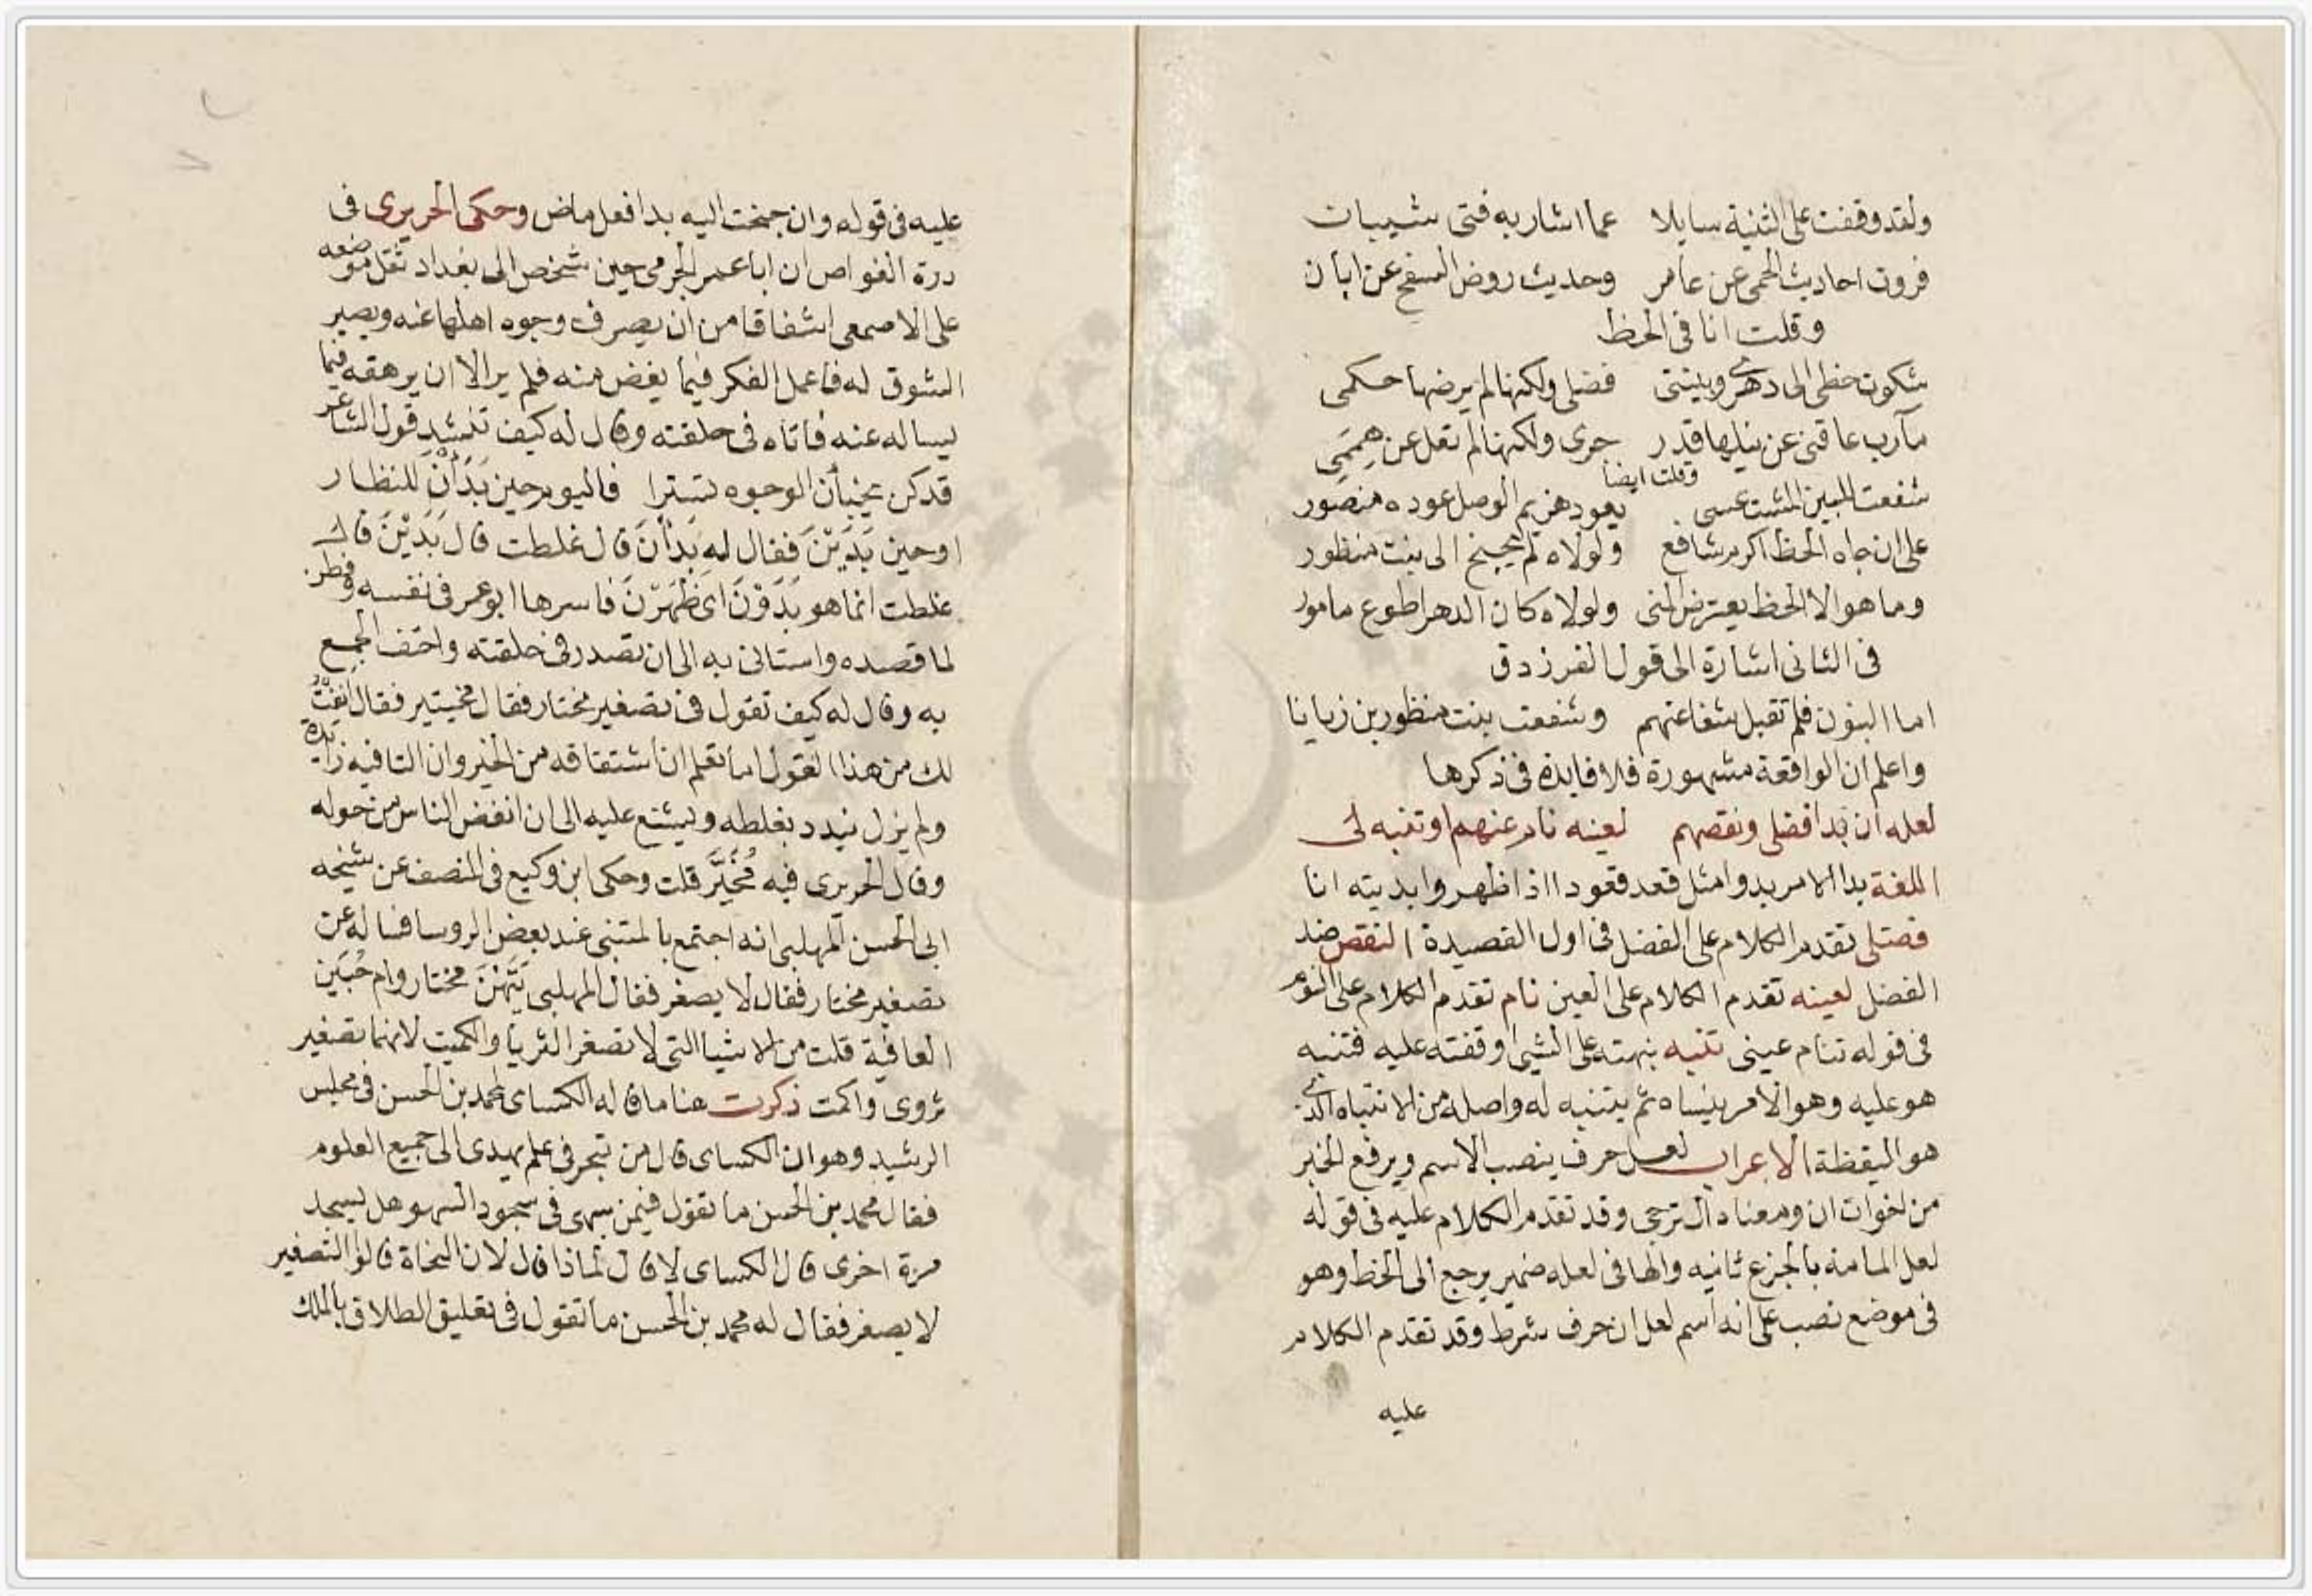 ولقد وقفت على الثنية سايلا عما اشار به فتى شيبان
فروت احاديث الحمى عن عامر وحديث روض السفح عن ابان
وقلت انا فى الحظ
شكوت حظى الى دهرى وبينتى فضلى ولكنها لم يرضها حكمى
مآرب عاقنى عن نيلها قدر جرى ولكنها لم تعل عن هِممَى
وقلت ايضا
شفعت للبين المشت عسى يعود هزيم الوصل عوده منصور
على ان جاه الحظ اكرم شافع ولولاه لم يجنح الى بنت منظور
وما هو الا الحظ يعترض المنى ولولاه كان الدهر اطوع مامور
فى الثانى اشارة الى قول الفرزدق
اما البنون فلم تقبل شفاعتهم وشفعت بنت منظور بن زبانا
واعلم ان الواقعة مشهورة فلا فايدة فى ذكرها
لعله ان بدا فضلى ونقصهم لعينه نام عنهم او تنبه لى
اللغة بدا الامر يبدوا مثل قعد قعودا اذا ظهر وابديته انا
فضلى تقدم الكلام على الفضل فى اول القصيدة النقص ضد
الفضل لعينه تقدم الكلام على العين نام تقدم الكلام على النوم
فى قوله تنام عينى تنبه نبهته على الشى اوقفته عليه فتنبه
هو عليه وهو الامر ينساه ثم يتنبه له واصله من الانتباه الذى
هو اليقظة الاعراب لعل حرف ينصب الاسم ويرفع الخبر
من اخوات ان ومعناه الترجى وقد تقدم الكلام عليه فى قوله
لعل المامة بالجزع ثانيه والها فى لعله ضمير يرجع الى الحظ وهو
فى موضع نصب على انه اسم لعل ان حرف شرط وقد تقدم الكلام
عليه
عليه فى قوله وان جنحت اليه بدا فعل ماض وحكى الحريرى فى
درة الغواص ان ابا عمر الجرمى حين شخص الى بغداد ثقل موضعه
على الاصمعى اشفاقا من ان يصرف وجوه اهلها عنه ويصير
السوق له فاعمل الفكر فيما يغض منه فلم ير الا ان يرهقه فيما
يساله عنه فاتاه فى حلقته وقال له كيف تنشد قول الشاعر
قد كن يخبأن الوجوه تسترا فاليوم حين بَدَأْنَ للنظار
او حين بَدَيْنَ فقال له بَدَأْنَ قال غلطت قال بَدَيْنَ قال
غلطت انما هو بَدَوْنَ اى ظَهَرْنَ فاسرها ابو عمر فى نفسه وفطن
لما قصده واستانى به الى ان تصدر فى حلقته واحتف الجمع
به وقال له كيف تقول فى تصغير مختار فقال مخيتير فقال انفتُ
لك من هذا القول اما تعلم ان اشتقاقه من الخير وان التا فيه زايدة
ولم يزل يندد بغلطه ويشنع عليه الى ان انفض الناس من حوله
وقال الحريرى فيه مُخَيَّر قلت وحكى ابن وكيع فى المنصف عن شيخه
ابى الحسن المهلبى انه اجتمع بالمتنبى عند بعض الروسا فساله عن
تصغير مختار فقال لا يصغر فقال المهلبى مختار وام حُبَين
العافية قلت من الاشيا التى لا تصغر الثريا والكميت لانهما تصغير
ثروى واكمت ذكرت هنا ما قاله الكساى لمحمد بن الحسن فى مجلس
الرشيد وهو ان الكساى قال من تبحر فى علم يهدى الى جميع العلوم
فقال محمد بن الحسن ما تقول فيمن سهى فى سجود السهو هل يسجد
مرة اخرى قال الكساى لا قال لماذا قال لان النحاة قالوا التصغير
لا يصغر فقال له محمد بن الحسن ما تقول فى تعليق الطلاق بالملك